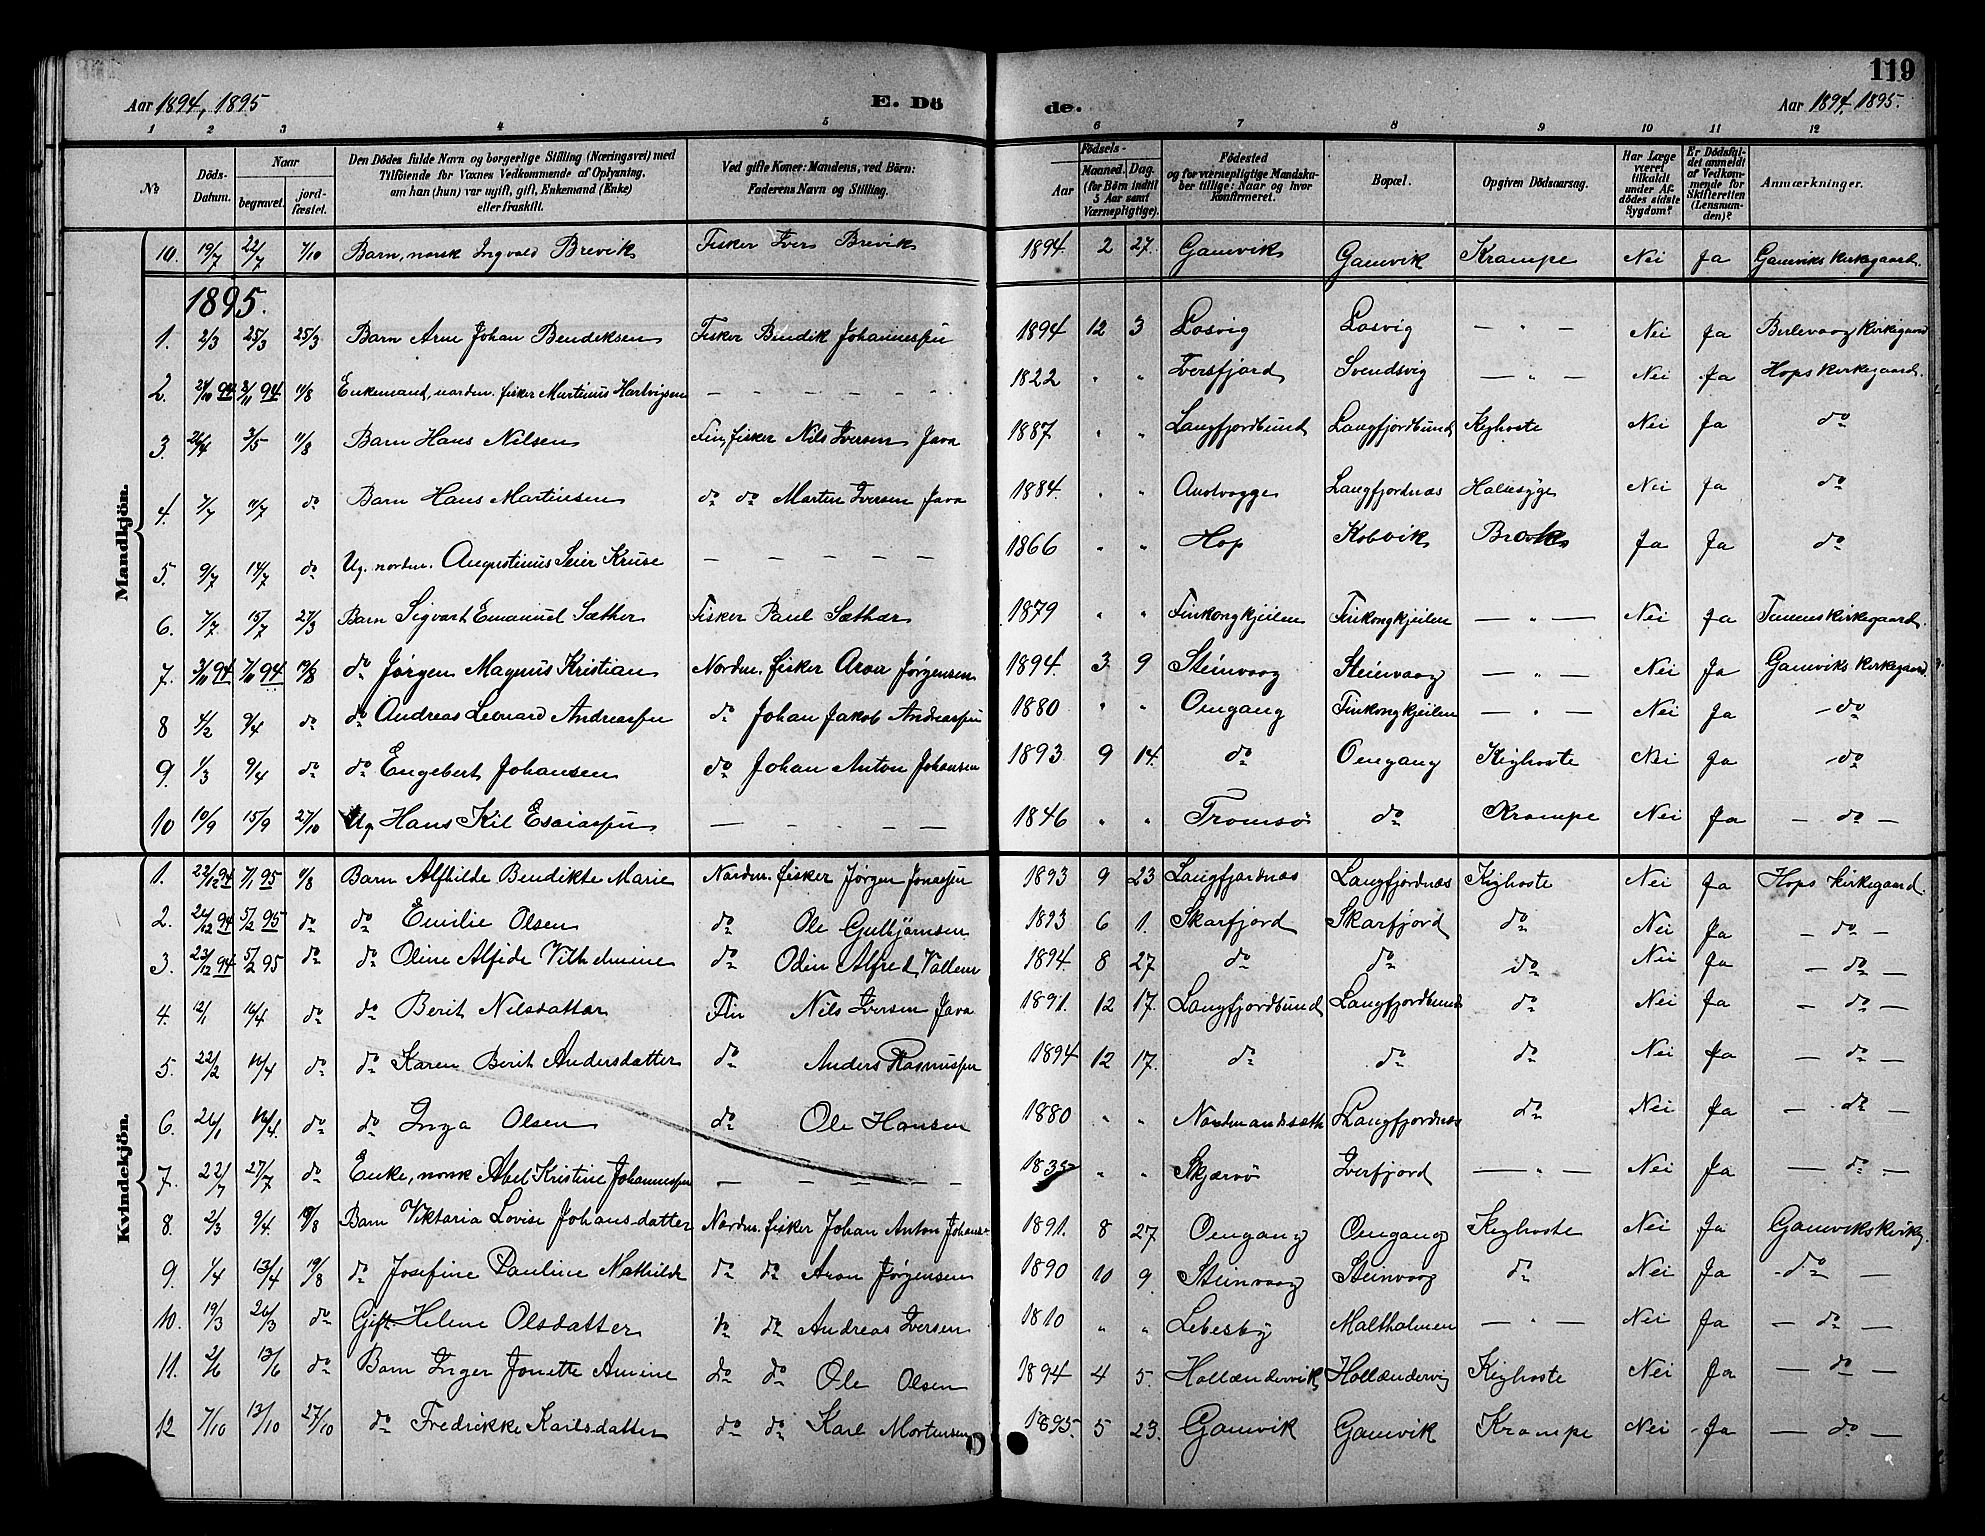 119
Aar 1894, 1895
E. Dö
de.
Aar 1894, 1895.
1 2 3 4 5 6 7 8 9 10 11 12
No
Döds-Datum.
Naar
begravet.
jord-fæstet.
Den Dödes fulde Navn og borgerlige Stilling (Næringsvei) med
Tilföiende for Voxnes Vedkommende af Oplysning,
om han (hun) var ugift, gift, Enkemand (Enke)
eller fraskilt.
Ved gifte Koner: Mandens, ved Börn:
Faderens Navn og Stilling.
Födsels-
Aar
Maaned. Dag.
(for Börn indtil
5 Aar samt
Værnepligtige).
Födested
og for værnepligtige Mandskaber tillige: Naar og hvor
konfirmeret.
Bopæl.
Opgiven Dödsaarsag.
Har Læge
været
tilkaldt
under Afdödes sidste
Sygdom?
Er Dödsfaldet anmeldt
af Vedkommende for
Skifteretten
(Lensmanden)?
Anmærkninger.
Mandkjön.
10. 19/7 22/7 7/10 Barn, norsk Ingvald Brevik Fisker Iver Brevik 1894. 2 27. Gamvik Gamvik Krampe Nei Ja Gamviks Kirkegaard.
1895.
1. 2/3 25/3 25/3 Barn Arne Johan Bendiksen Fisker Bendik Johannessen 1894 12 3 Losvig Losvig — " — Nei Ja Berlevaag Kirkegaard
2. 24/10 94 3/11 94 11/8 Enkemand, nordm. fisker Martinus Hartvigsen — — — — — 1822 " " Iversfjord Svendsvig — " — Nei Ja Hops Kirkegaard.
3. 26/4 3/5 11/8 Barn Hans Nilsen Fin, fisker Nils Iversen Java 1887 " " Langfjordbund Langfjordbund Kighoste Nei Ja do
4. 7/7 11/7 do Barn Hans Martinsen do do Martin Iversen Java 1884. " " Andvagge Langfjordnæs Halssyge Nei Ja do
5. 9/7 14/7 do Ug. nordm. Augustinus Seier Kruse — — — — — 1866 " " Hop Kobvik Brok Ja Ja do
6. 7/7 15/7 27/3 Barn Sigvart Emanuel Sæther Fisker Paul Sæther 1879 " " Finkongkjeilen Finkongkjeilen — " — Nei Ja Tunnes Kirkegaard.
7. 3/11 94 7/11 94 19/8 do Jørgen Magnus Kristian Nordm. fisker Aron Jørgensen 1894. 3 9 Steinvaag Steinvaag — " — Nei Ja Gamviks Kirkegaard
8 4/2 9/4 do do Andreas Leonard Andreassen do Johan Jakob Andreassen 1880 " " Omgang Finkongkjeilen — " — Nei Ja do
9. 1/3 9/4 do do Engebert Johansen do Johan Anton Johansen 1893 9 14. do Omgang Kighoste Nei Ja do
10 10/9 15/9 27/10 Ug Hans Kil Esaiassen — — — — — 1846 " " Tromsø do Krampe Nei Ja — do —
Kvindekjön.
1. 22/12 94 7/1 95 11/8 Barn Alfhilde Bendikte Marie Nordm. fisker Jørgen Jonassen 1893 9 23 Langfjordnæs Langfjordnæs Kighoste Nei Ja Hops Kirkegaard.
2. 26/12 94 5/2 95 do do Emilie Olsen do Ole Gulbjørnsen 1893 6 1. Skarfjord Skarfjord do Nei Ja — do —
3. 23/12 94 5/2 95 do do Oline Alfide Vilhelmine do Odin Alfred Vallem 1894. 8 27 do do do Nei Ja — do —
4. 12/1 16/4 do do Berit Nilsdatter Fin Nils Iversen Java 1891. 12 17. Langfjordbund Langfjordbund do Nei Ja — do —
5. 22/2 16/4 do do Karen Berit Andersdatter do Anders Rasmussen 1894 12 17. do do do Nei Ja — do —
6. 26/1 16/4. do do Inga Olsen do Ole Hansen 1880 " " Nordmandssæth Langfjordnæs do Nei Ja — do —
7. 22/7 27/7 do Enke, norsk Abel Kristine Johannessen — — — — — " " Skjærvö Iverfjord — " — Nei Ja — do —
8. 2/3 9/4. 19/8 Barn Viktoria Lovise Johansdatter Nordm. fisker Johan Anton Johans- 1891. 8 27 Omgang Omgang Kighoste Nei Ja Gamviks kirkg.
9. 1/4 13/4 19/8 do Josefine Pauline Mathilde do do Aron Jørgensen 1890 10 9. Steinvaag Steinvaag do Nei Ja — do —
10. 19/3 26/3 do Gift. Helene Olsdatter do do Andreas Iversen 1810 " " Lebesby Maltholmen — " — Nei Ja — do —
11. 2/6 13/6 do Barn Inger Jonette Amine do do Ole Olsen 1894 4 5. Hollændervik Hollændervig Kighoste Nei Ja — do —
12 7/10 13/10 27/10 do Fredrikke Karlsdatter do do Karl Mortensen 1895. 5 23. Gamvik Gamvik Krampe Nei Ja — do —